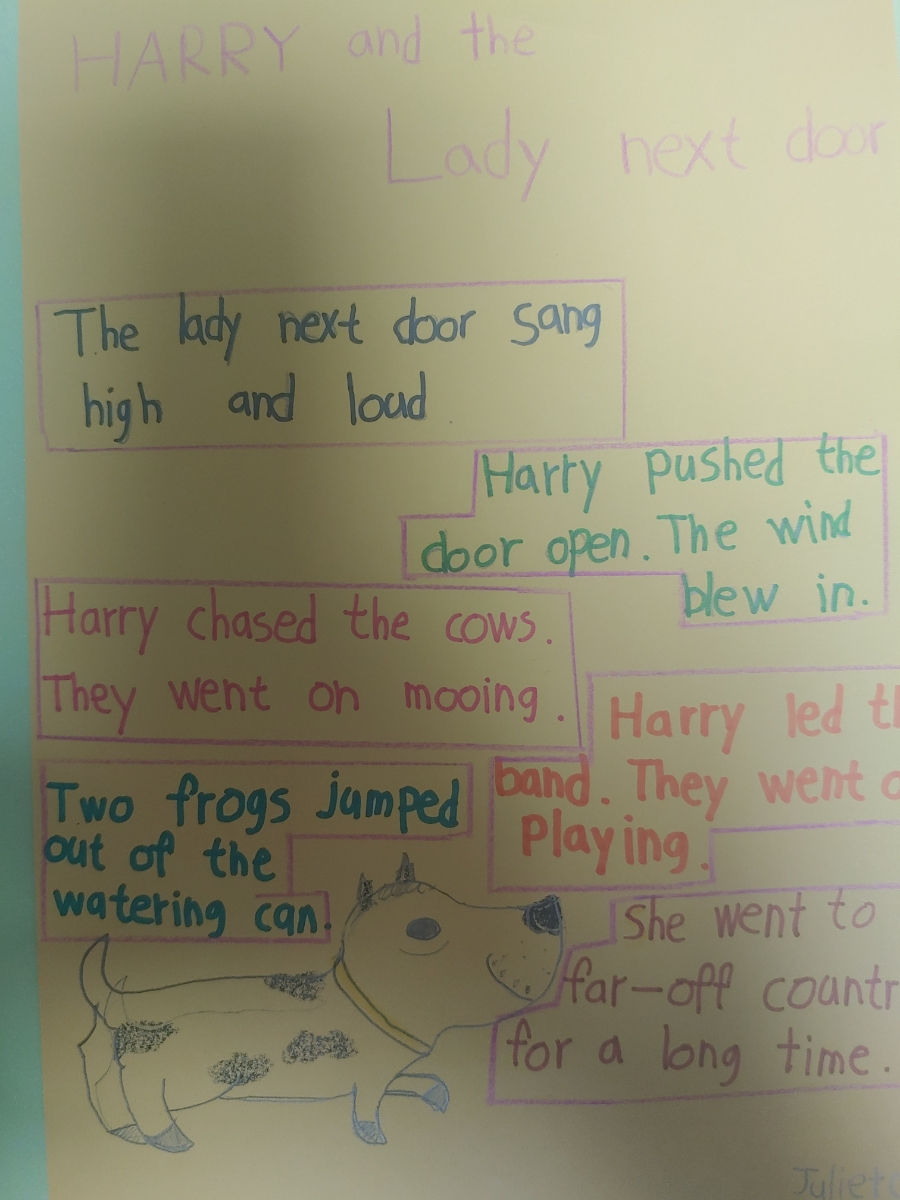 HARRY and the
Lady next door
The lady next door sang
high and loud
Harry pushed the
door open. The wind
blew in.
Harry chased the cows.
They went on mooing.
Harry led th
band. They went o
Playing.
Two frogs jumped
out of the
watering can.
She went to
far-off countr
for a long time.
Juliet